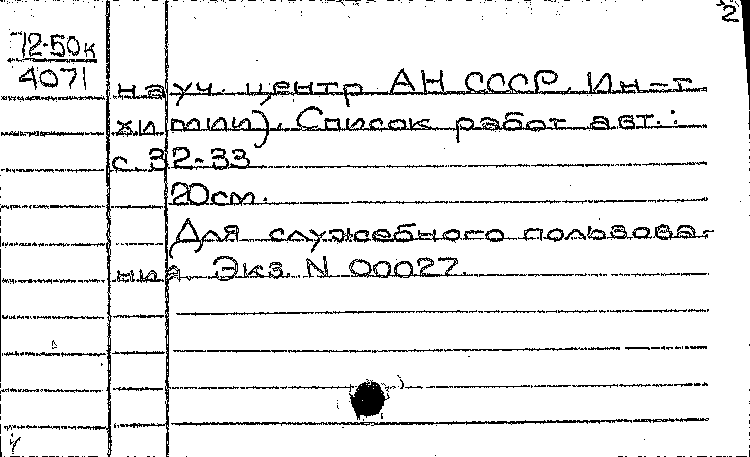 2
72-50к
4071
науч. центр АН СССР. Ин-т
химии). Список работ авт.:
с. 32-33
20см.
Для служебного пользова-
ния Экз. N 00027.